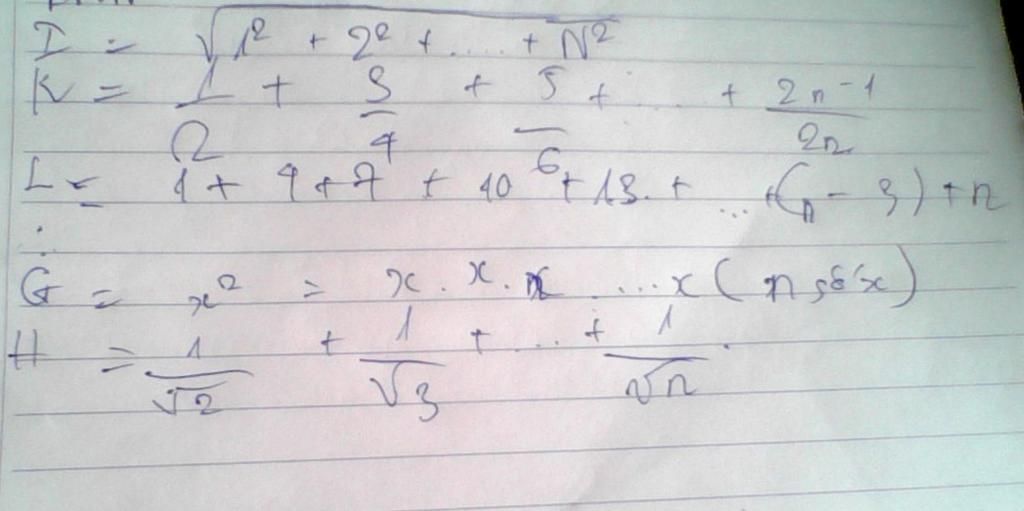 I = √(1² + 2² + .... + N²)
K = 1/2 + 3/4 + 5/6 + ... + 2n-1/2n
L = 1 + 4 + 7 + 10 + 13 + ... + (n - 3) + n
G = x² = x . x . x .... x ( n số x )
H = 1/√2 + 1/√3 + ... + 1/√n .